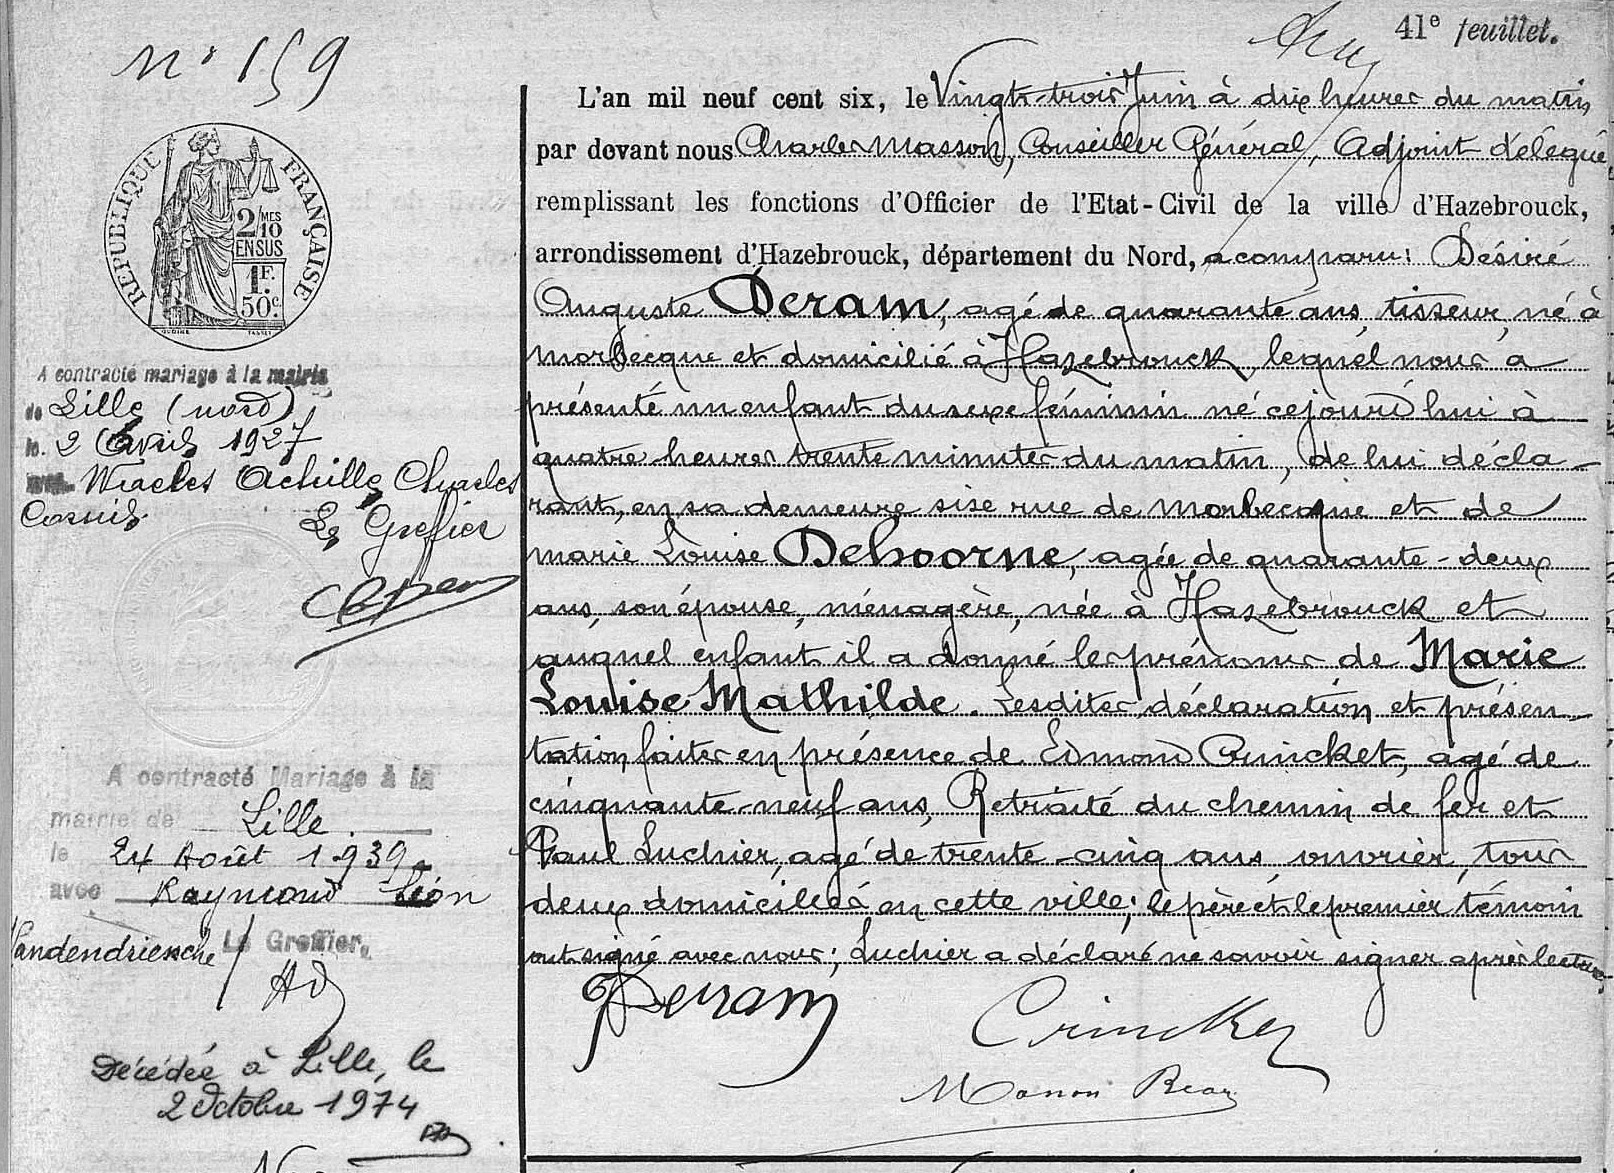 41e feuillet.
N° 159
RÉPUBLIQUE FRANÇAISE
2/10 MES
EN SUS
1 F.
50 c.
A contracté mariage à la mairie
de Lille (nord)
le 2 Avril 1927
Achille Charles
Le Greffier
A contracté Mariage à la
mairie de Lille.
le 24 Août 1939
avec Raymond Léon
Vandendriessche
Le Greffier,
Décédée à Lille, le
2 Octobre 1974
L'an mil neuf cent six, le Vingt-trois Juin à dix heures du matin
par devant nous Charles Masson, Conseiller Général, Adjoint délégué
remplissant les fonctions d'Officier de l'Etat-Civil de la ville d'Hazebrouck,
arrondissement d'Hazebrouck, département du Nord, a comparu: Désiré
Auguste Deram, agé de quarante ans, tisseur, né à
morbecque et domicilié à Hazebrouck, lequel nous a
présenté un enfant du sexe féminin né cejourd'hui à
quatre heures trente minutes du matin, de lui décla-
rant, en sa demeure sise rue de morbecque et de
marie Louise Dehoorne, agée de quarante-deux
ans, son épouse, ménagère, née à Hazebrouck et
auquel enfant il a donné les prénoms de Marie
Louise Mathilde. Lesdites déclaration et présen-
tation faites en présence de Edmond Crincket, agé de
cinquante-neuf ans, Retraité du chemin de fer et
Paul Luchier, agé de trente-cinq ans, ouvrier, tous
deux domiciliés en cette ville; le père et le premier témoin
ont signé avec nous; Luchier a déclaré ne savoir signer après lecture.
Deram